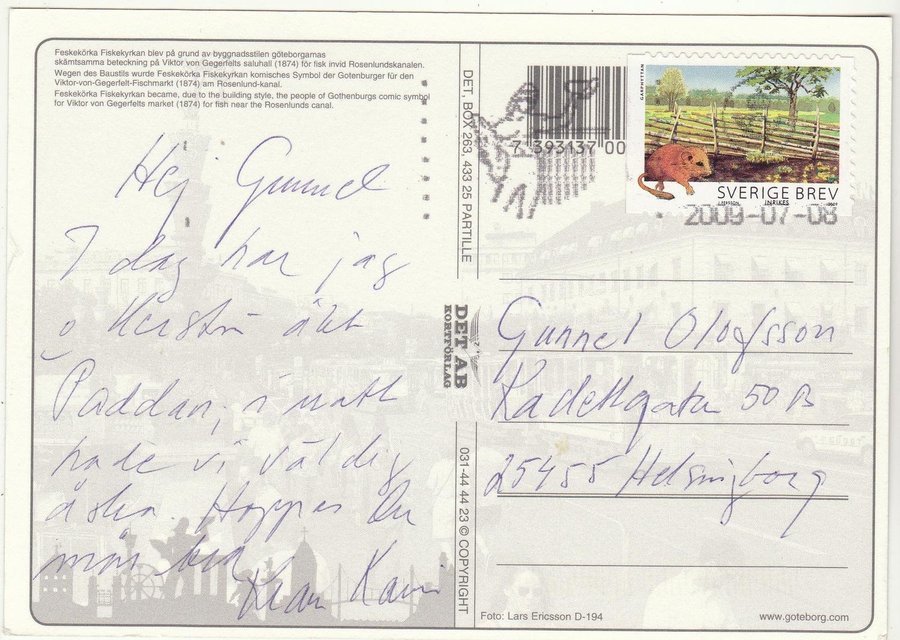 Feskekörka Fiskekyrkan blev på grund av byggnadsstilen göteborgarnas
skämtsamma beteckning på Viktor von Gegerfelts saluhall (1874) för fisk invid Rosenlundskanalen.
Wegen des Baustils wurde Feskekörka Fiskekyrkan komisches Symbol der Gotenburger für den
Viktor-von-Gegerfelt-Fischmarkt (1874) am Rosenlund-kanal.
Feskekörka Fiskekyrkan became, due to the building style, the people of Gothenburgs comic symbol
for Viktor von Gegerfelts market (1874) for fish near the Rosenlunds canal.
Hej Gunnel
I dag har jag
o Kerstin åkt
Paddan, i natt
hade vi väldig
åska. Hoppas Du
mår bra
Kram
DET, BOX 263, 433 25 PARTILLE
DET AB
KORTFÖRLAG
031-44 44 23 © COPYRIGHT
7 393137 00
GARPHYTTAN
SVERIGE BREV
INRIKES
2009-07-08
Gunnel Olofsson
Kadettgatan 50 B
25455 Helsingborg
Foto: Lars Ericsson D-194
www.goteborg.com